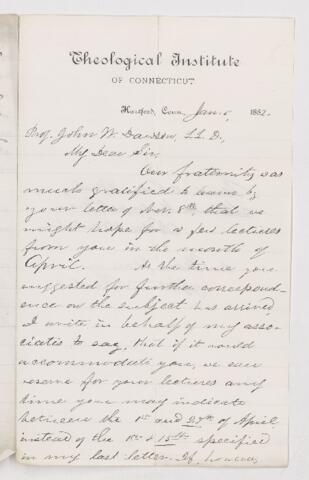 Theological Institute
OF CONNECTICUT
Hartford, Conn., Jan. 5, 1882.
Prof. John W. Dawson, LL.D.,
My Dear Sir,
Our fraternity was
much gratified to learn by
your letter of Nov. 8th, that we
might hope for a few lectures
from you in the month of
April. As the time you
suggested for further correspond-
ence on the subject has arrived
I write in behalf of my asso-
ciates to say, that if it would
accommodate you, we can
for your lectures any
time you may indicate
between the 1st and 27th of April
instead of the 1st & 15th specified
in my last letter. If, however,